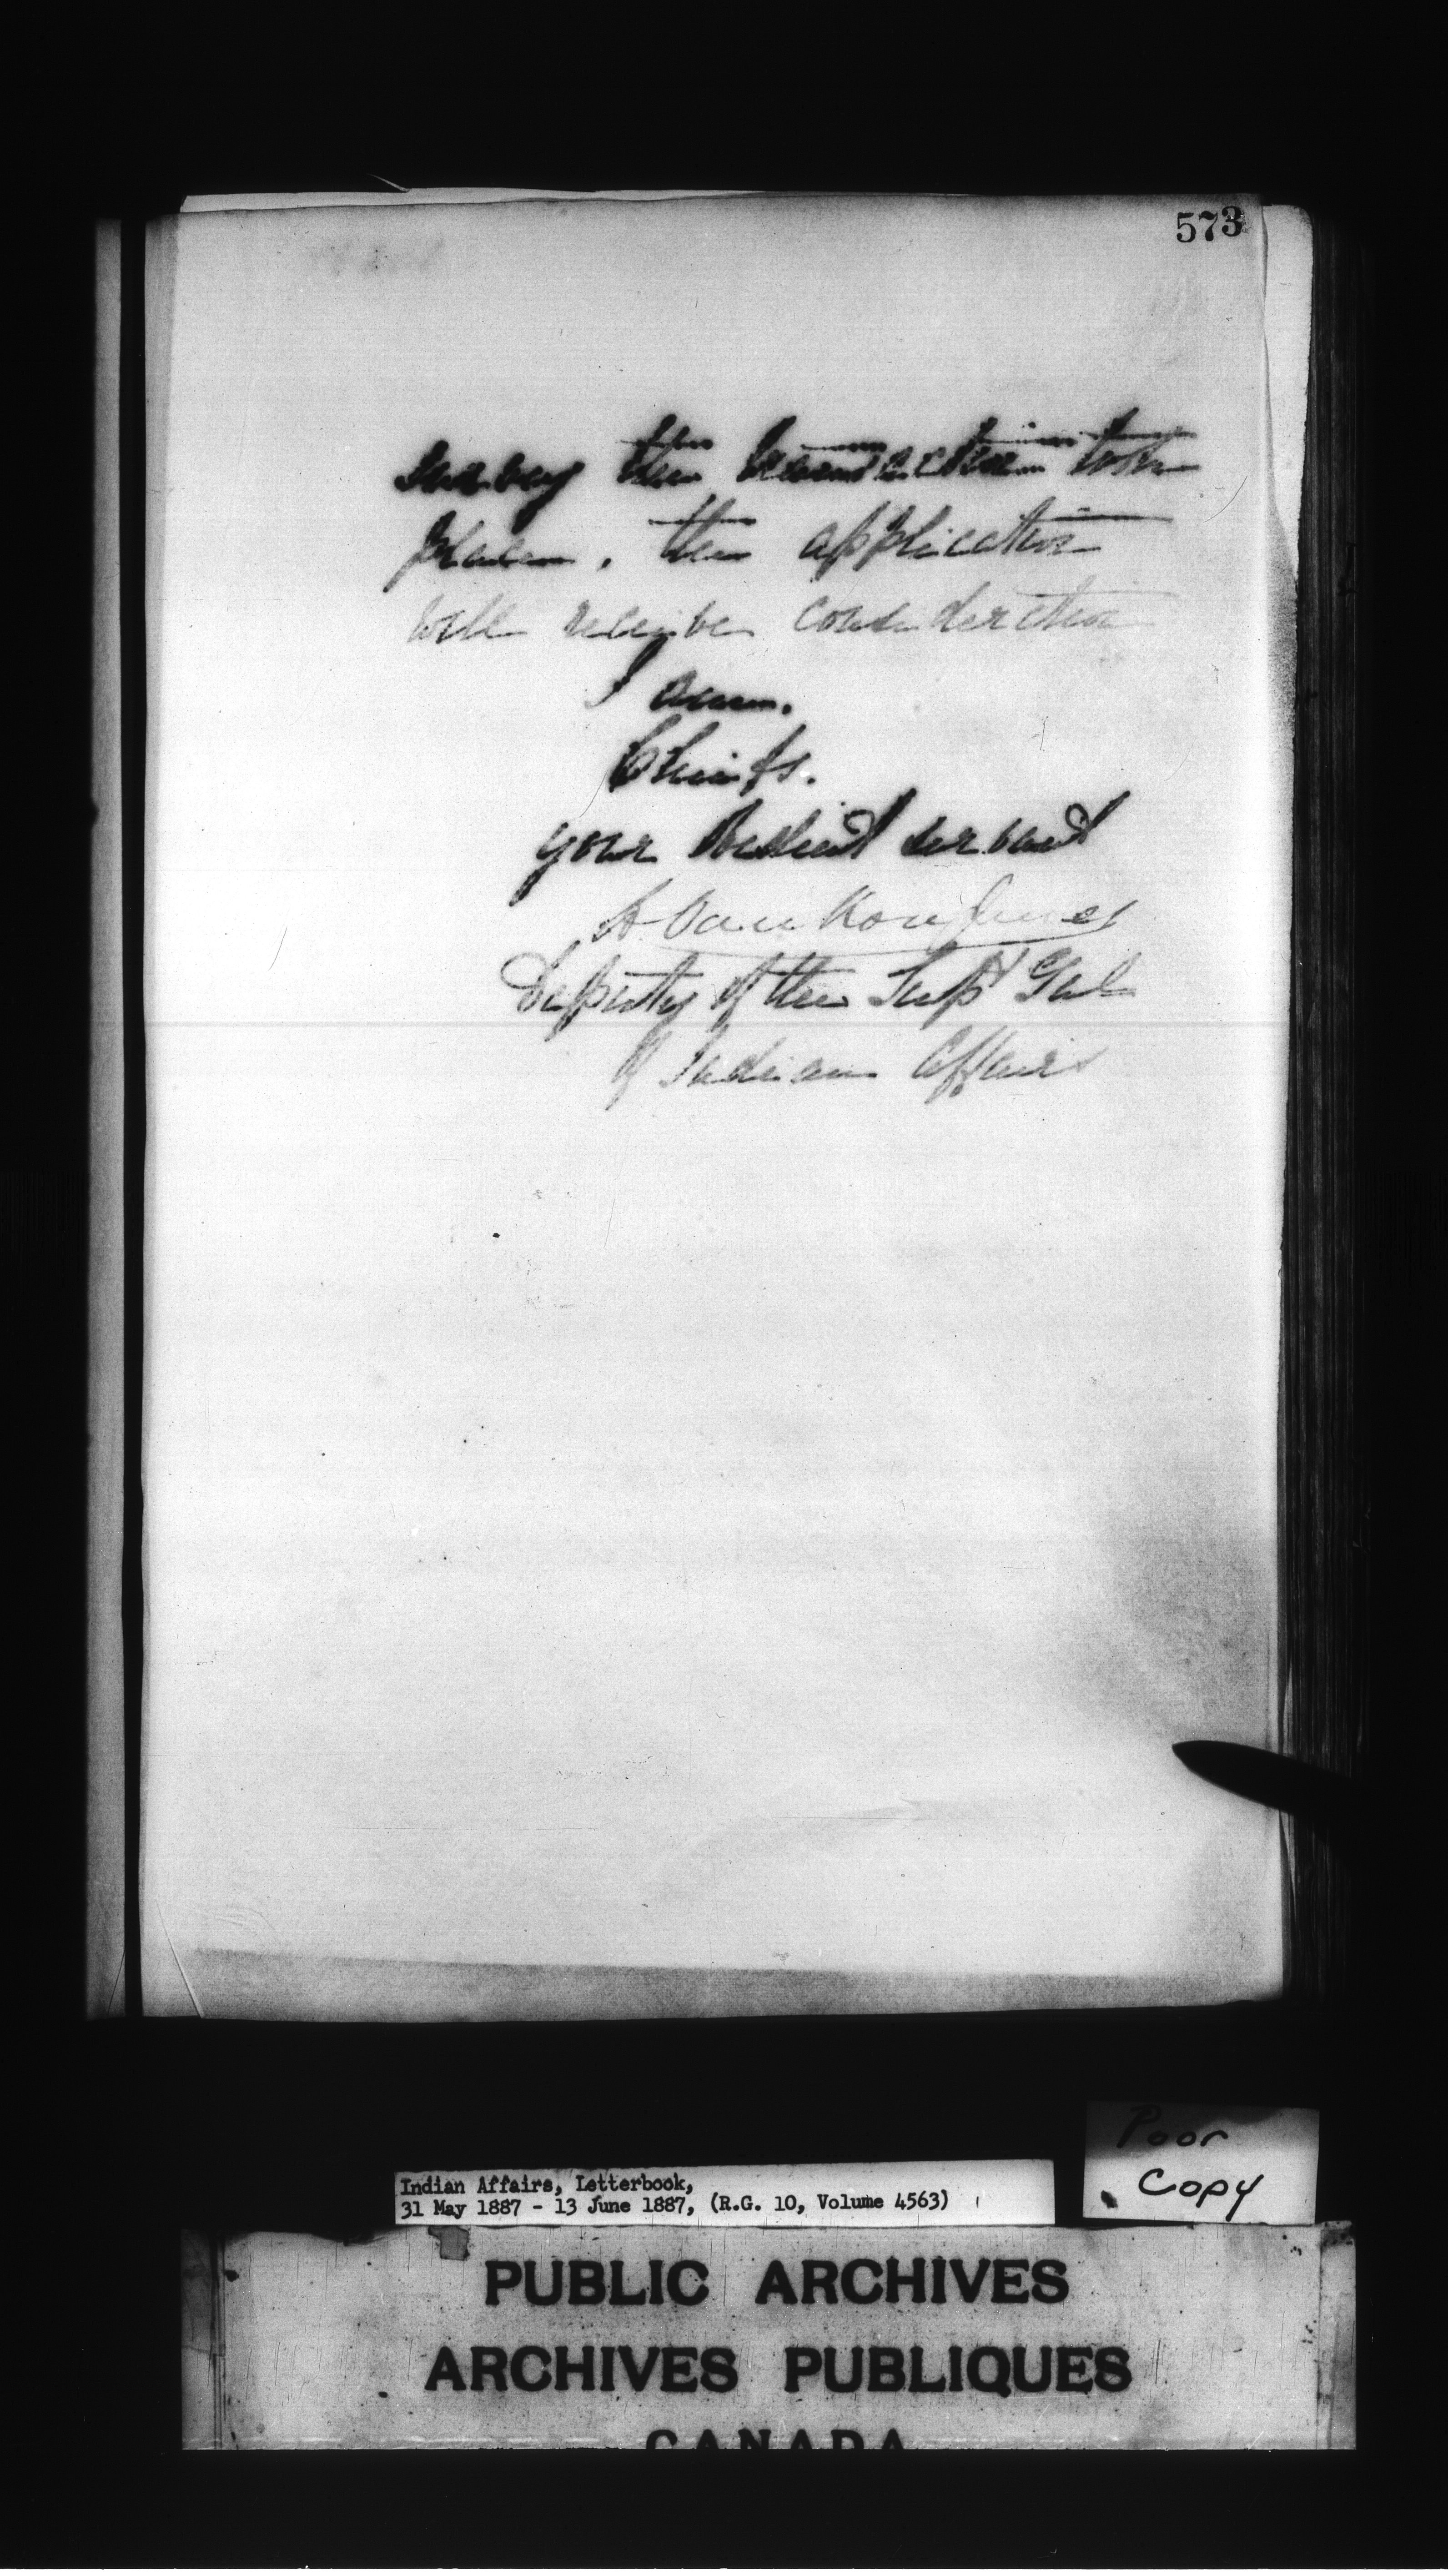 573
survey the transaction took
place, the application
will receive consideration
I am,
Chiefs,
your Obedient servant
L Vankoughnet
Deputy of the Supt Genl
of Indian Affairs
Poor
Copy
Indian Affairs, Letterbook,
31 May 1887 - 13 June 1887, (R.G. 10, Volume 4563)
PUBLIC ARCHIVES
ARCHIVES PUBLIQUES
CANADA